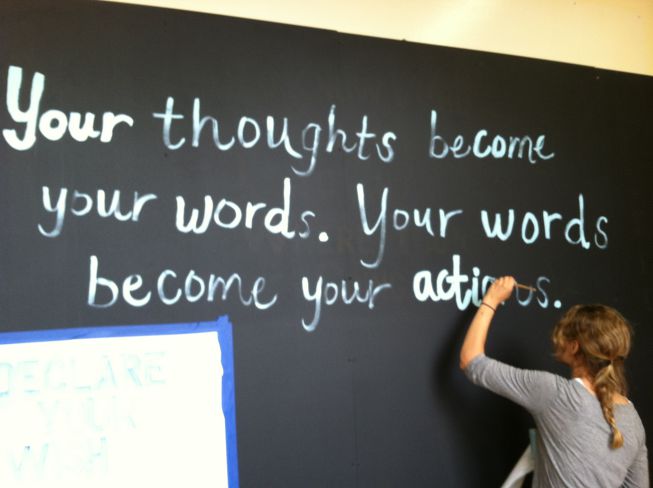 Your thoughts become
your words. Your words
become your actions.
DECLARE
YOUR